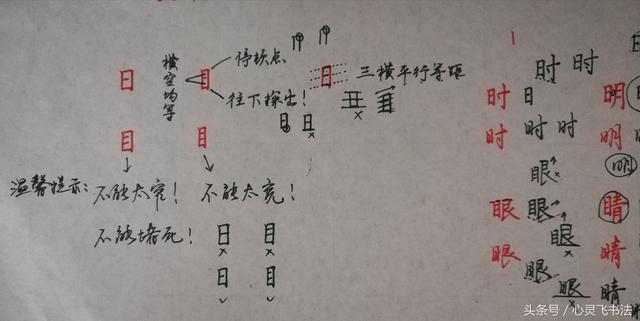 停顿点
日 横空均等 目 日 三横平行等距
往下探出！
日 目
温馨提示：不能太宽！ 不能太宽！
不能堵死！ 日 目
日 目
时 时 时 日 明
时 时 时 明
眼 明
眼 眼 睛
眼 眼 眼 睛
眼 睛
头条号／心灵飞书法